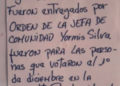 Fueron entregados por
ORDEN DE LA JEFA DE
COMUNIDAD Yormis Silva
fueron PARA LAS perso-
nas que votaron al 1º
de diciembre en la